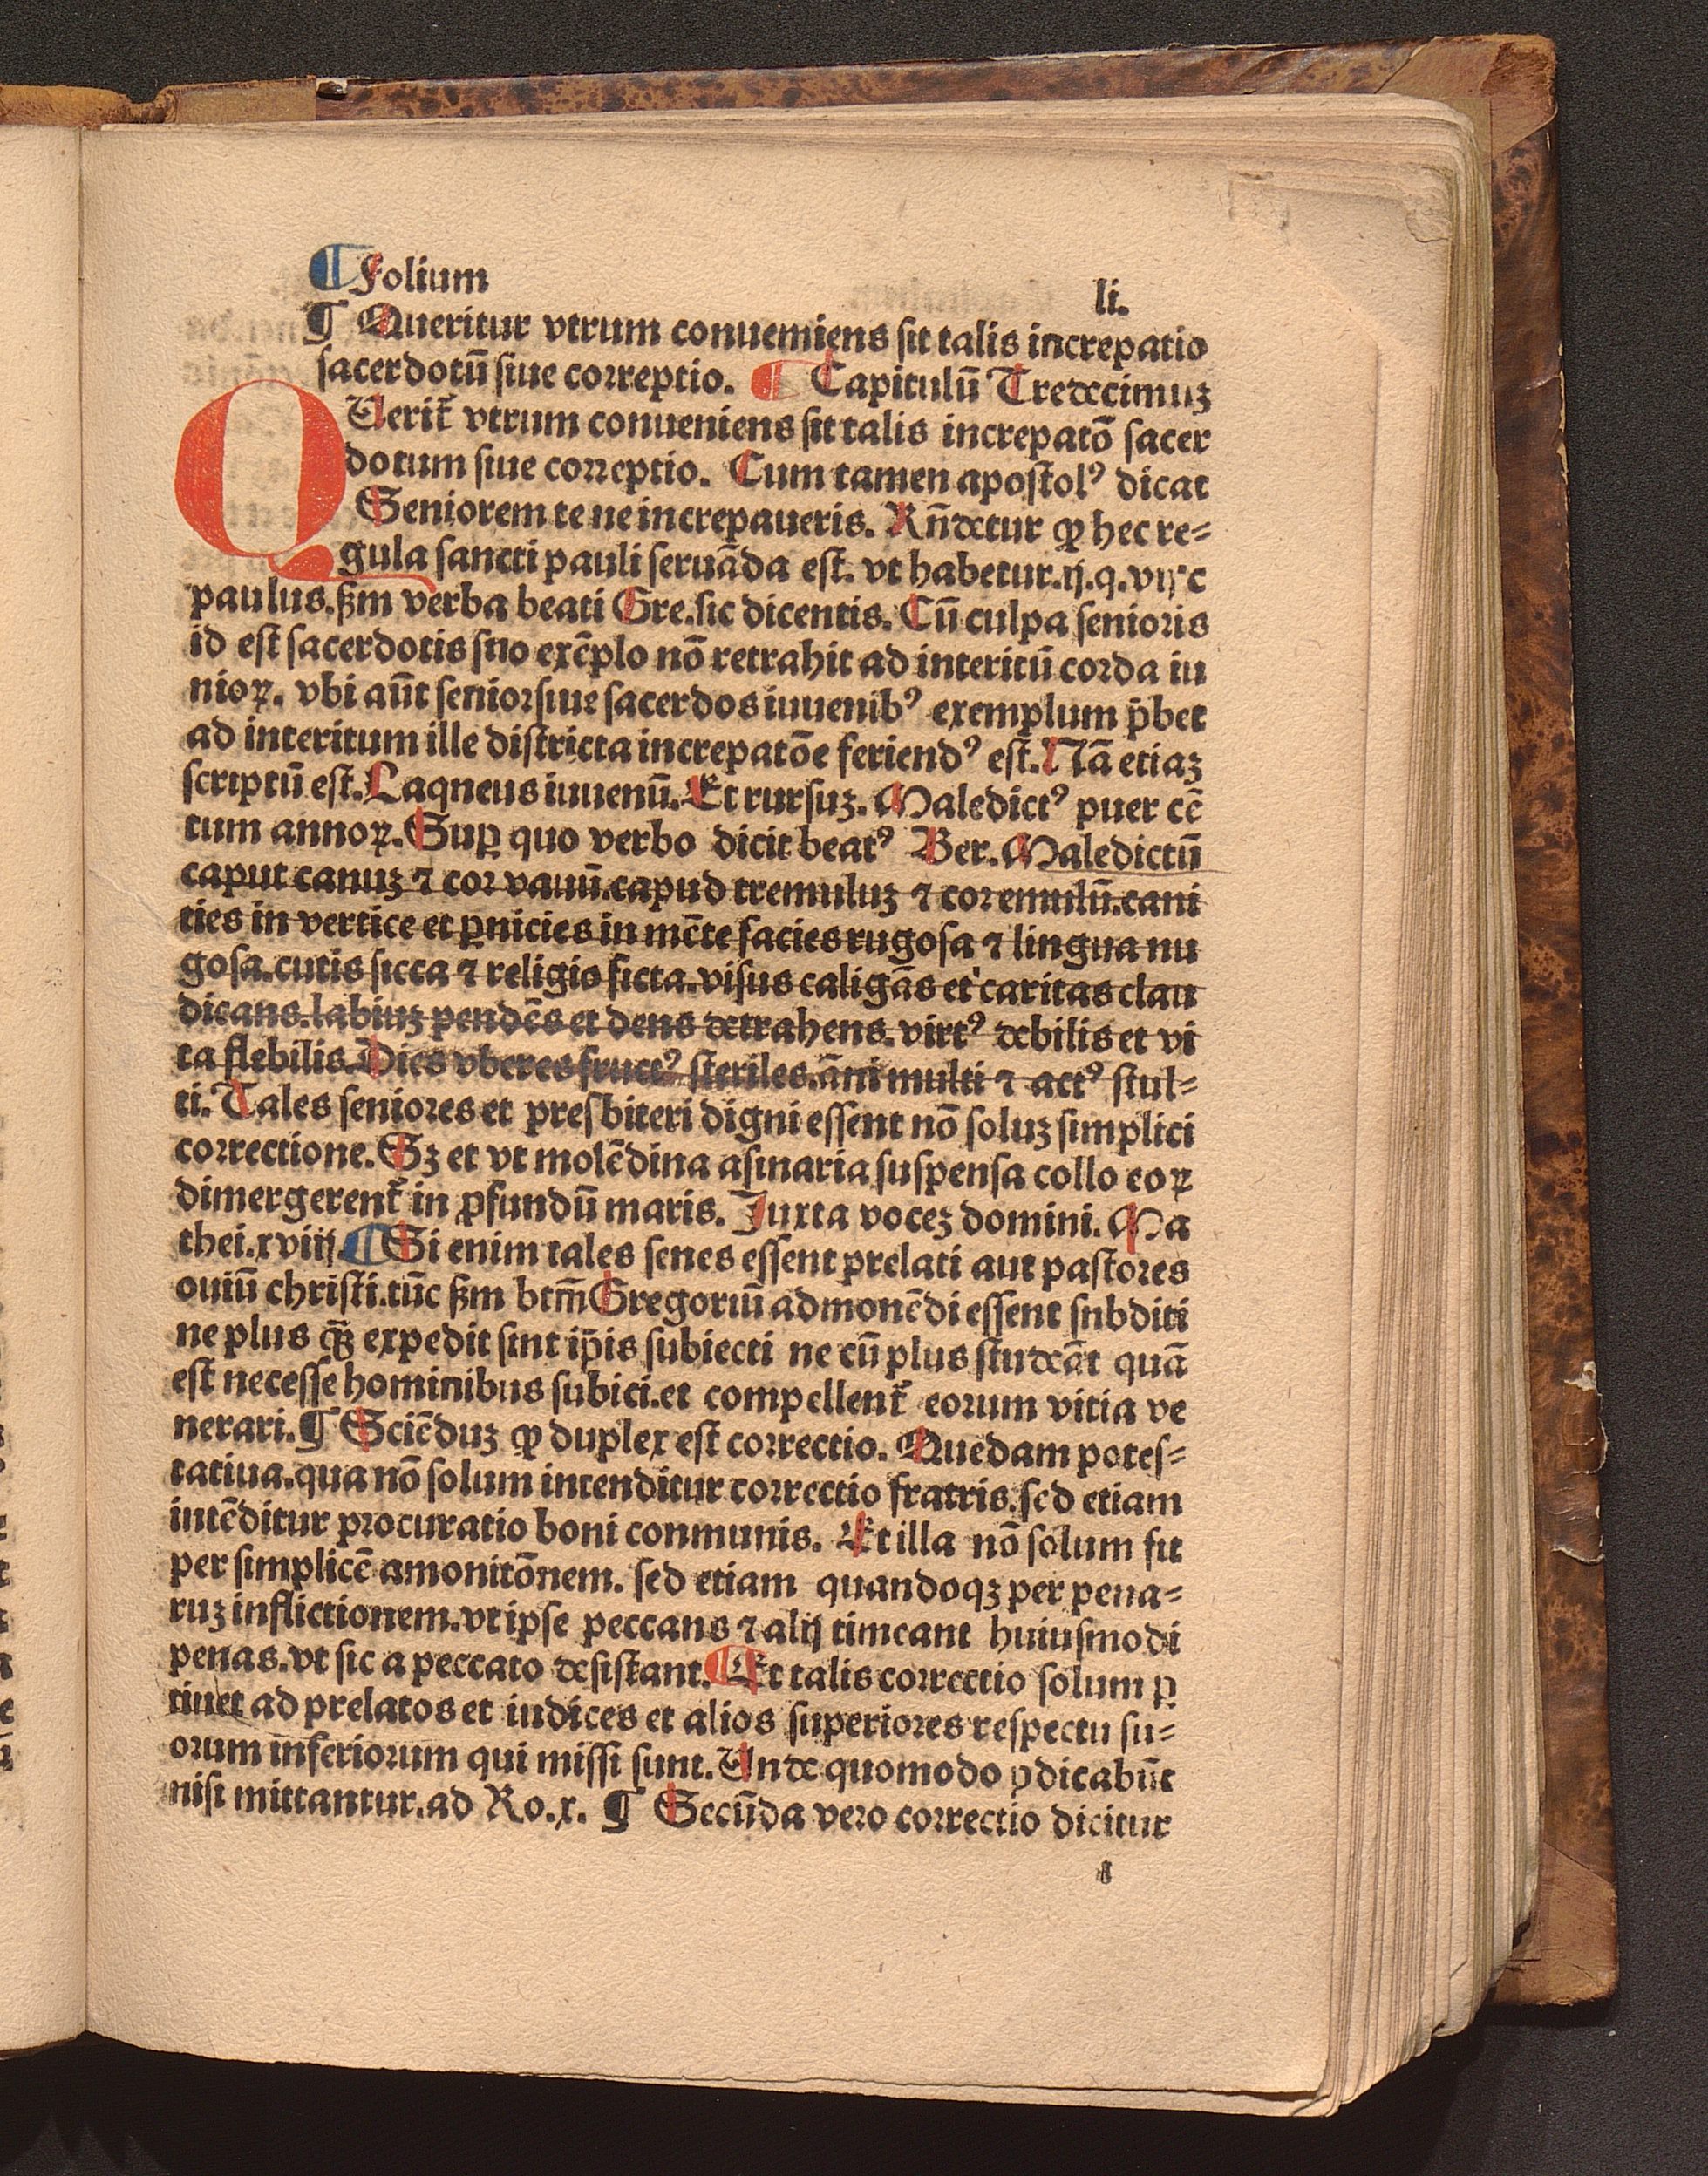 ¶ Folium li.
¶ Queritur vtrum conuemiens sit talis increpatio
sacerdotū siue correptio. ¶ Capitulū Tredecimuꝫ
QUerit᷑ vtrum conueniens sit talis increpatō sacer
dotum siue correptio. Cum tamen apostolꝰ dicat
Seniorem te ne increpaueris. Rn̄detur ꝙ hec re⸗
gula sancti pauli seruāda est. vt habetur.ij.q.vij.c
paulus.ẜm verba beati Gre.sic dicentis. Cū culpa senioris
id est sacerdotis sno exēplo nō retrahit ad interitū corda iu
nioꝝ. vbi aūt senior siue sacerdos iuuenibꝰ exemplum p̄bet
ad interitum ille districta increpatōe feriendꝰ est. Nā etiaꝫ
scriptū est. Laqneus iuuenū. Et rursuꝫ. Maledictꝰ puer cē
tum annoꝝ. Suꝑ quo verbo dicit beatꝰ Ber. Maledictū
caput canuꝫ ⁊ cor vanū.capud tremuluꝫ ⁊ cor emulū.cani
ties in vertice et ꝑnicies in mēte facies rugosa ⁊ lingua nu
gosa.cutis sicca ⁊ religio ficta.visus caligās et caritas clau
dicans.labiuꝫ pendēs et dens detrahens. virtꝰ debilis et vi
ta flebilis. Dies vberes fructꝰ steriles.āni multi ⁊ actꝰ stul⸗
ti. Tales seniores et presbiteri digni essent nō soluꝫ simplici
correctione. Sꝫ et vt molēdina asinaria suspensa collo eoꝝ
dimergerent᷑ in ꝓfundū maris. Juxta voceꝫ domini. Ma
thei.xviij. ¶ Si enim tales senes essent prelati aut pastores
ouiū christi.tūc ẜm btm̄ Gregoriū admonēdi essent snbditi
ne plus qꝫ̄ expedit sint ip̄is subiecti ne cū plus studeāt quā
est necesse hominibus subici.et compellent᷑ eorum vitia ve
nerari. ¶ Sciēduꝫ ꝙ duplex est correctio. Quedam potes⸗
tatiua.qua nō solum intenditur correctio fratris.sed etiam
intēditur procuratio boni conmunis. Et illa nō solum fit
per simplicē amonitōnem. sed etiam quandoqꝫ per pena⸗
ruꝫ inflictionem.vt ipse peccans ⁊ alij timeant huiusmodi
penas.vt sic a peccato desistant. ¶ Et talis correctio solum ꝑ
tinet ad prelatos et iudices et alios superiores respectu su⸗
orum inferiorum qui missi sunt. Unde quomodo p̄dicabūt
nisi mittantur.ad Ro.x. ¶ Secūda vero correctio dicitur